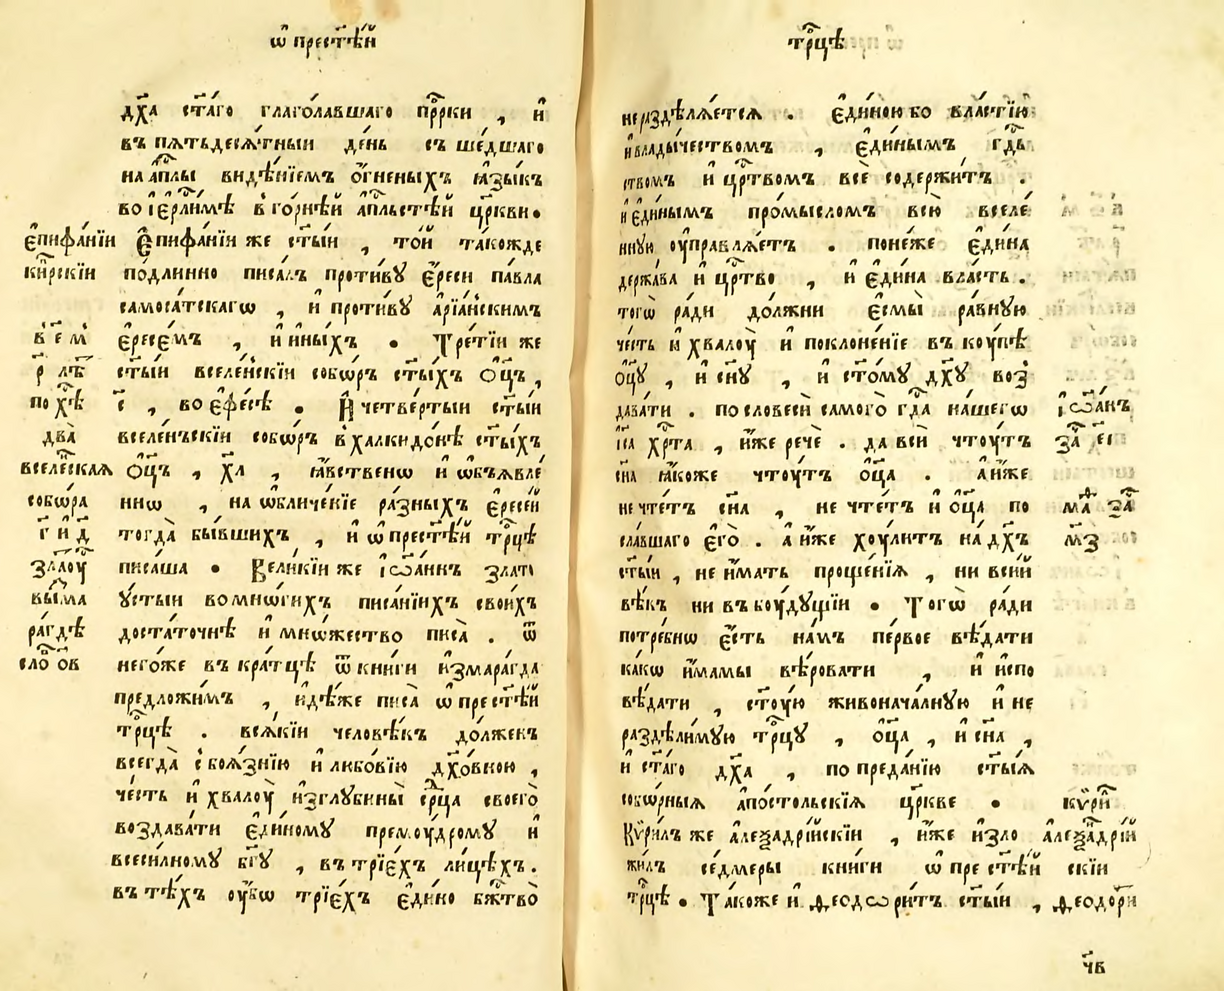 ѡ҆ прест҃ѣ́й
дх҃а ст҃а́го глаго́лавшаго прⷪ҇рки , и҆
въ пѧтьдесѧ́тныи де́нь съше́дшаго
на а҆пⷭ҇лы видѣ́нїемъ о҆́гненыхъ ꙗ҆зы́къ
во і҆ерⷭ҇ли́мѣ в го́рнѣй а҆пⷭ҇льстѣй цр҃кви •
є҆пифа́нїи Є҆пифа́нїи же ст҃ы́и , то́й та́кожде
ки́прскїи подлинно писа́лъ проти́вꙋ є҆́реси па́вла
самоса́тскагѡ , и҆ проти́вꙋ а҆рїа́нскимъ
в҃ є҃ м҃ є҆ресе́мъ , и҆ и҆ны́хъ • Тре́тїи же
р҃ лѣ҃ ст҃ы́и вселе́нскїи собо́ръ ст҃ы́хъ Ѻ҆ц҃ъ ,
по хⷭ҇ѣ с҃ , во є҆фе́сѣ • И҆ четве́ртыи ст҃ы́и
два̀ вселе́нъскїи собо́ръ в халкидо́нѣ ст҃ы́хъ
вселе́нская Ѻ҆ц҃ъ , х҃л , ꙗ҆́вственѡ и҆ ѡ҆бъѧвле́
собѡ́ра ннѡ , на ѡ҆бличе́нїе ра́зныхъ є҆ресе́й
г҃ и҆ д҃ тогда̀ бы́вшихъ , и҆ ѡ҆ прест҃ѣ́й трⷪ҇цѣ
злаⷮоу писа́ша • Вели́кїи же і҆ѡа́ннъ злато
ꙋ́стыи во мно́гихъ писа́нїихъ свои́хъ
ра́гдѣ доста́точнѣ и҆ мно́жество писа̀ . ѿ
сло́ ѻ҃в него́же въ кра́тцѣ ѿ кни́ги и҆змара́гда
предложи́мъ , и҆дѣ́же писа̀ ѡ҆ прест҃ѣ́й
трⷪ҇цѣ . всѧ́кїи человѣ́къ до́лженъ
всегда̀ с боѧ́знїю и҆ любо́вїю дх҃о́вною ,
че́сть и҆ хвалоу̀ и҆зглꙋбины̀ срⷣца своего̀
воздава́ти є҆ди́номꙋ премоу́дромꙋ и҆
всеси́лномꙋ бг҃ꙋ , въ трїе́хъ ли́цѣхъ .
въ тѣ́хъ оу҆́бѡ трїе́хъ є҆ди́но бж҃тво̀
трⷪ҇цѣ
нераздѣлѧ́етсѧ . є҆ди́ною бо вла́стїю
и҆ влады́чествомъ , є҆ди́нымъ гдⷭ҇ь
ствомъ и҆ црⷭ҇твомъ всѐ содержи́тъ .
и҆ є҆ди́нымъ про́мысломъ всю̀ вселе́
ннꙋю оу҆правлѧ́етъ . поне́же є҆ди́на
держа́ва и҆ црⷭ҇тво , и҆ є҆ди́на вла́сть .
тогѡ̀ ра́ди до́лжни є҆смы̀ ра́внꙋю
че́сть и҆ хвалоу̀ и҆ поклоне́нїе въ коу́пѣ
ѻ҆ц҃ꙋ , и҆ сн҃ꙋ , и҆ ст҃о́мꙋ дх҃ꙋ воз
дава́ти . по словесѝ самого̀ гдⷭ҇а на́шегѡ і҆ѡа́нъ
і҆с҃а хрⷭ҇та̀ , и҆́же речѐ . да всѝ чтоу́тъ заⷱ҇ є҃і
сн҃а ꙗ҆́коже чтоу́тъ ѻ҆ц҃а̀ . а и҆́же
не чте́тъ сн҃а , не чте́тъ и҆ ѻ҆ц҃а по маⷴ҇ заⷱ҇
сла́вшаго є҆го̀ . а и҆́же хоу́литъ на дх҃ъ м҃з
ст҃ы́и , не и҆́мать проще́нїѧ , ни в си́й
вѣ́къ ни въ боу́дꙋщїи • Тогѡ̀ ра́ди
потре́бнѡ є҆́сть на́мъ пе́рвое вѣ́дати
ка́кѡ и҆́мамы вѣ́ровати , и҆ испо
вѣ́дати , ст҃оу́ю живонача́лнꙋю и҆ не
раздѣли́мꙋю трⷪ҇цꙋ , ѻ҆ц҃а , и҆ сн҃а ,
и҆ ст҃а́го дх҃а , по преда́нїю ст҃ы́ѧ
собо́рныѧ а҆по́стольскїѧ цр҃кве • кѷри́
Кѷри́лъ же а҆леѯадрі́йскїи , и҆́же и҆зло алеѯа́дрїй
жи́лъ се́дмеры кни́ги ѡ҆ прест҃ѣ́й скїи
трⷪ҇цѣ • Та́коже и҆ Ѳеодѡри́тъ ст҃ы́и , Ѳеодори
ч҃в